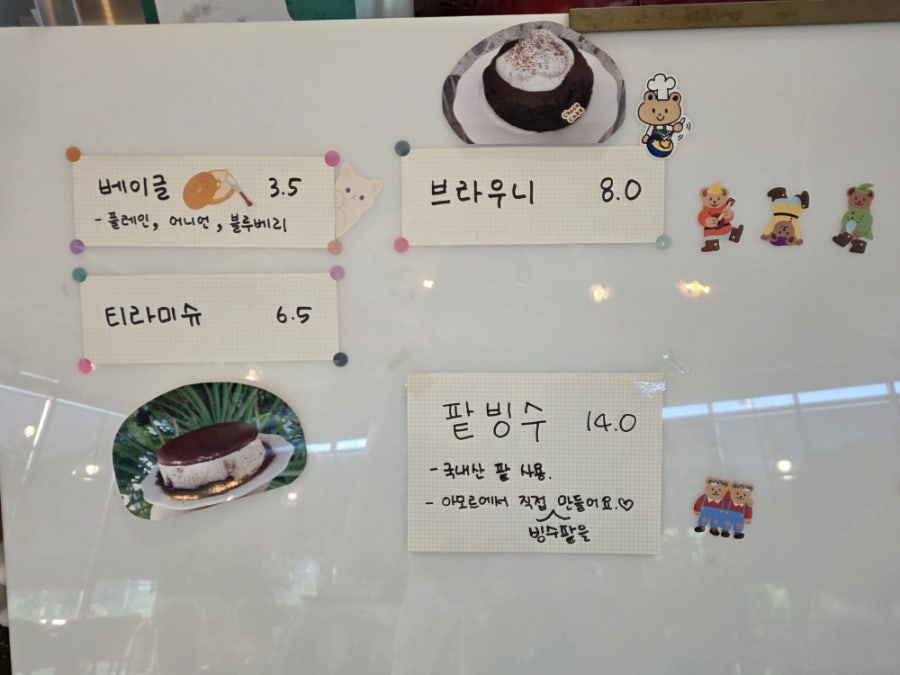 베이글 3.5
- 플레인, 어니언, 블루베리
티라미슈 6.5
브라우니 8.0
팥빙수 14.0
- 국내산 팥 사용.
- 아모르에서 직접 만들어요.♡
빙수팥을